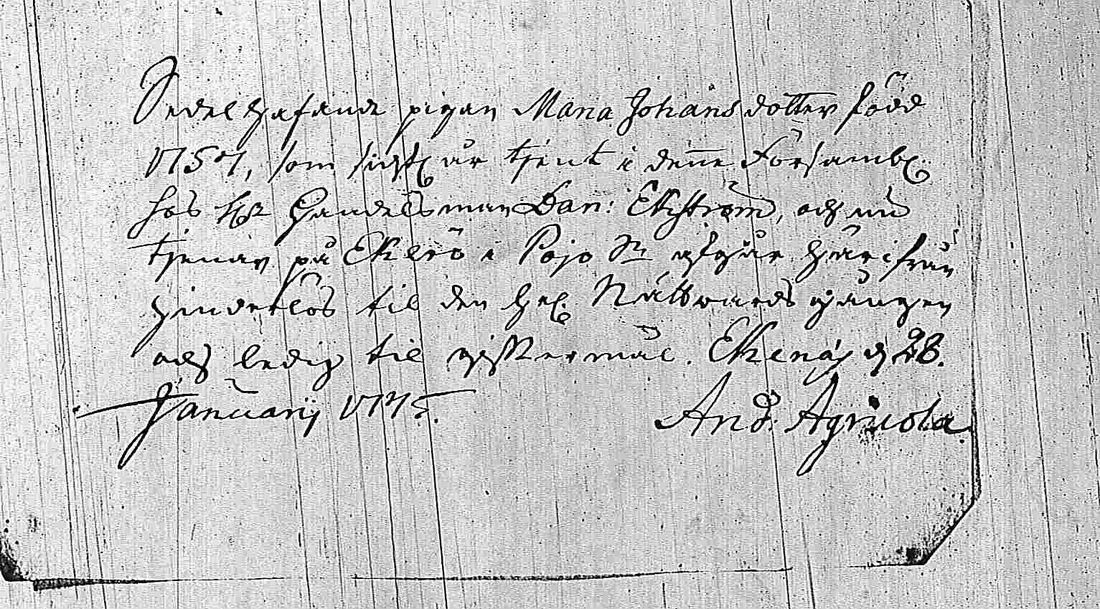 Sedelhafande pigan Maria Johansdotter född
1757, som sidstl. år tjent i denne Församl.
hos Hr Handelsman Dan: Ekström, och nu
tjenar på Ekerö i Pojo Sn afgår härifrån
hinderlös til den Hel. Nattwards gången
och ledig til gifftermål. Ekenäs d 28.
Januarij 1775.
And: Agricola.